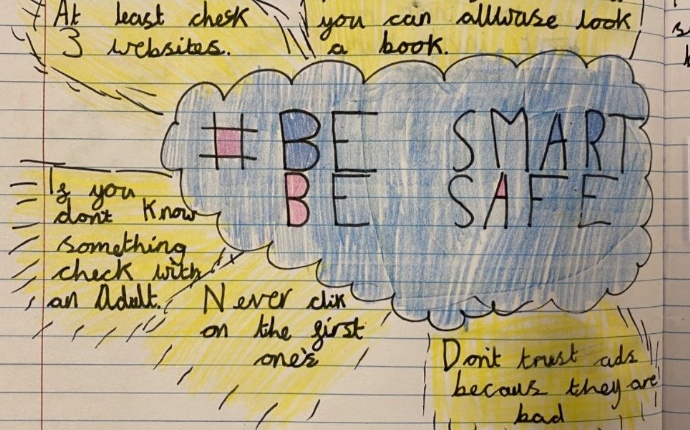 At least chesk
3 websites.
you can allwase look
a book.
# BE SMART
BE SAFE
If you
dont know
something
check with
an Adult.
Never clik
on the first
one's
Don't trust ads
becaus they are
bad